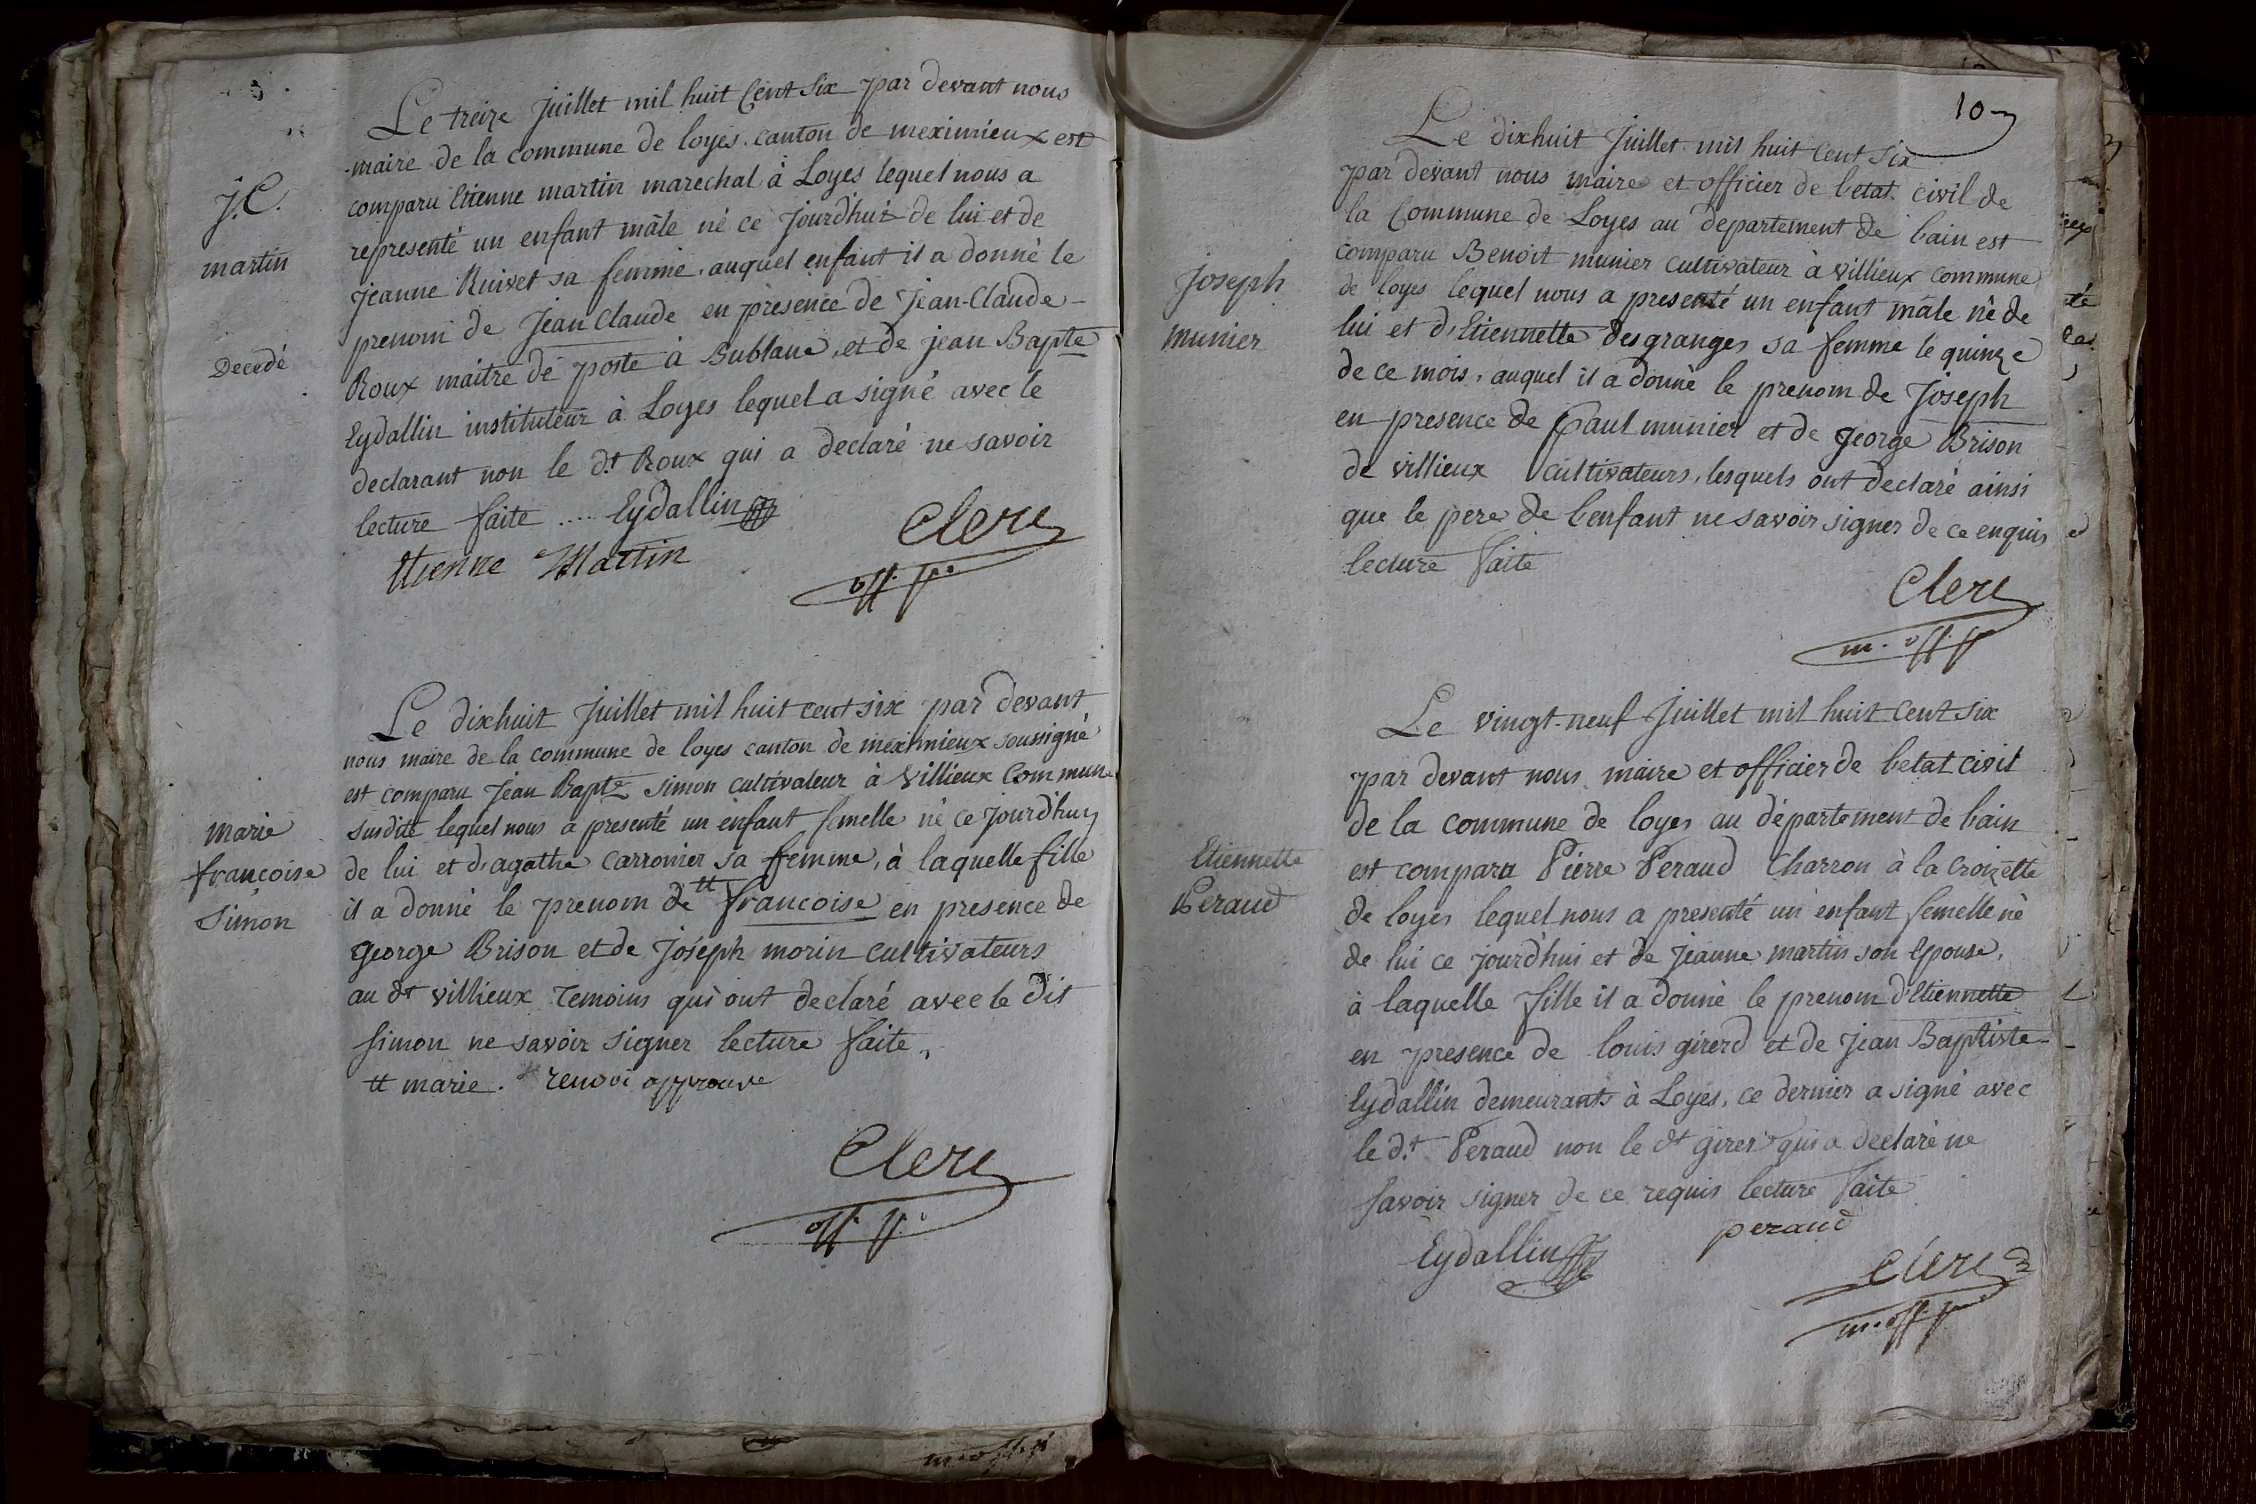 J.C.
martin
Decedé
Le treize Juillet mil huit Cent Six par devant nous
maire de la commune de loyes. canton de meximieux est
comparu Etienne martin marechal à Loyes lequel nous a
representé un enfant mâle né ce jourdhui de lui et de
jeanne Ruivet sa femme, auquel enfant il a donné le
prenom de Jean Claude en presence de Jean-Claude
Roux maitre de poste à Bublane, et de jean Bapte
Eydallin instituteur à Loyes lequel a signé avec le
declarant non le dt Roux qui a declaré ne savoir
lecture faite .... Eydallin
Etienne Martin
Clerc
off. p.
marie
francoise
Simon
Le dixhuit Juillet mil huit cent six par devant
nous maire de la commune de loyes canton de meximieux soussigné
est comparu Jean Bapte Simon cultivateur à Villieux Commune
susdite lequel nous a presenté un enfant femelle né ce jourd'huy
de lui et d'agathe carronier sa femme, à laquelle fille
il a donné le prenom de tt francoise en presence de
george Brison et de Joseph morin cultivateurs
au dt villieux Temoins qui ont declaré avec le dit
Simon ne savoir signer lecture faite,
tt marie. renvoi approuve
Clerc
off. p.
10
Joseph
munier
Le dixhuit Juillet mil huit cent six
par devant nous maire et officier de letat civil de
la Commune de Loyes au departement de lain est
comparu Benoit munier cultivateur à villieux commune
de loyes lequel nous a presenté un enfant mâle né de
lui et d'Etiennette Desgranges sa femme le quinze
de ce mois, auquel il a donné le prenom de Joseph
en presence de Paul munier et de george Brison
de villieux cultivateurs, lesquels ont declaré ainsi
que le pere de lenfant ne savoir signer de ce enquis
lecture faite
Clerc
m. off. p
Etiennette
Peraud
Le vingt-neuf Juillet mil huit Cent six
par devant nous maire et officier de letat civil
de la commune de loyes au département de lain
est comparu Pierre Peraud Charron à la croizette
de loyes lequel nous a presenté un enfant femelle né
de lui ce jourd'hui et de jeanne martin son Epouse,
à laquelle fille il a donné le prenom d'Etiennette
en presence de louis girerd et de Jean Baptiste
Eydallin demeurants à Loyes, ce dernier a signé avec
le dt Peraud non le dt girerd qui a declaré ne
savoir signer de ce requis lecture faite
peraud
Eydallin
Clerc
m. off. p